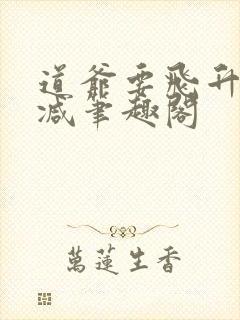 道爺要飛升
减筆趣閣
萬蓮生香